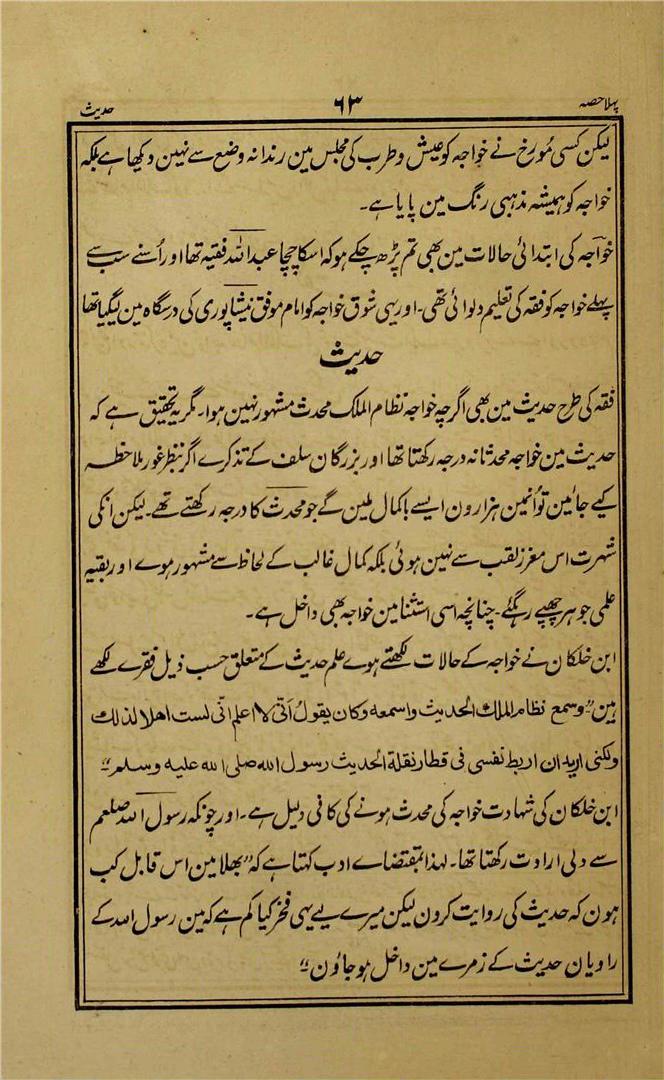 پہلا حصہ ۶۳ حدیث
لیکن کسی مُورخ نے خواجہ کو عیش و طرب کی مجلس مین رندانہ وضع سے نہین دیکھا ہے بلکہ
خواجہ کو ہمیشہ مذہبی رنگ مین پایا ہے۔
خواجہ کی ابتدائی حالات مین بھی تم پڑھ چکے ہو کہ اسکا چچا عبداللہ فقیہ تھا اور اُسنے سب سے
پہلے خواجہ کو فقہ کی تعلیم دلوائی تھی۔ اور یہی شوق خواجہ کو امام موفق نیشاپوری کی درسگاہ مین لیگیا تھا
حدیث
فقہ کی طرح حدیث مین بھی اگرچہ خواجہ نظام الملک محدث مشہور نہین ہوا۔ مگر یہ تحقیق ہے کہ
حدیث مین خواجہ محدثانہ درجہ رکھتا تھا اور بزرگان سلف کے تذکرے اگر بنظر غور ملاحظہ
کیے جائین تو اُنمین ہزارون ایسے باکمال ملین گے جو محدث کا درجہ رکھتے تھے۔ لیکن انکی
شہرت اس معزز لقب سے نہین ہوئی بلکہ کمال غالب کے لحاظ سے مشہور ہوے اور بقیہ
علمی جوہر چھپے رہگئے۔ چنانچہ اسی استثنا مین خواجہ بھی داخل ہے۔
ابن خلکان نے خواجہ کے حالات لکھتے ہوے علم حدیث کے متعلق حسب ذیل فقرے لکھے
ہین۔ "وسمع نظام الملک الحدیث واسمعه وکان یقولُ اَنّی لا اعلم انّی لست اهلا لذلك
ولکنی ارید ان اربط نفسی فی قطار نقلة الحدیث رسول الله صلی الله علیه وسلم"
ابن خلکان کی شہادت خواجہ کی محدث ہونے کی کافی دلیل ہے۔ اور چونکہ رسول اللہ صلعم
سے دلی ارادت رکھتا تھا۔ لہذا بمقتضاے ادب کہتا ہے کہ "بھلا مین اس قابل کب
ہون کہ حدیث کی روایت کرون لیکن میرے لیے یہی فخر کیا کم ہے کہ مین رسول اللہ کے
راویان حدیث کے زمرے مین داخل ہو جاؤن"